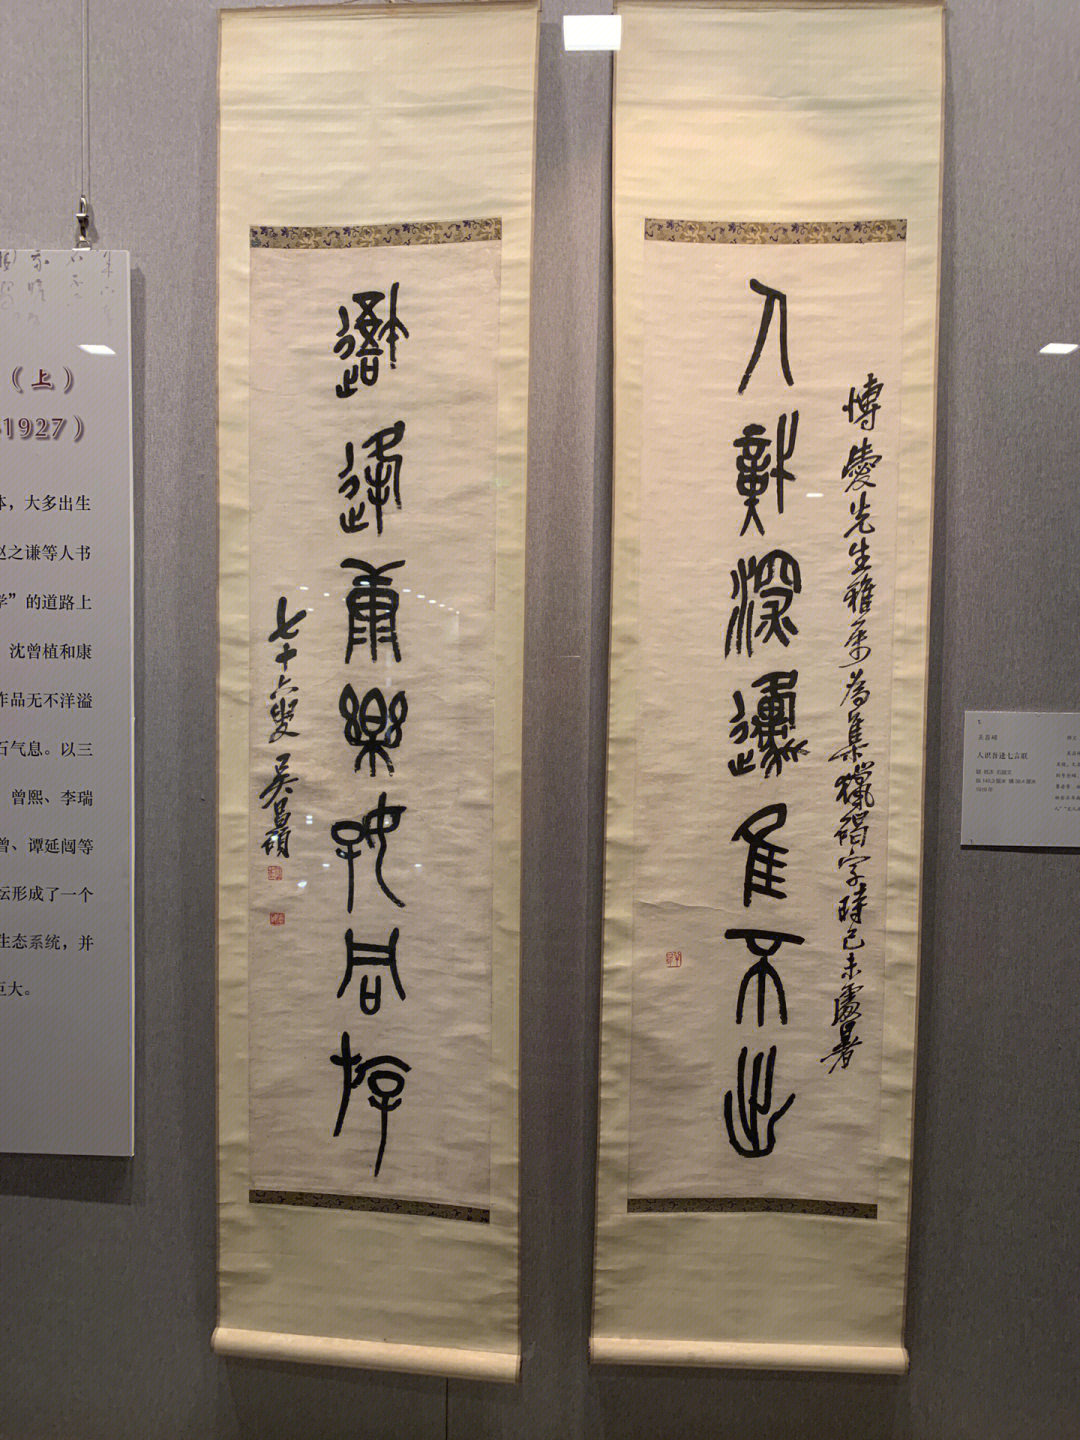 （上）
1927）
体，大多出生
赵之谦等人书
学”的道路上
沈曾植和康
作品无不洋溢
石气息。以三
曾熙、李瑞
曾、谭延闿等
坛形成了一个
生态系统，并
巨大。
博愛先生雅属為集獵碣字時己未處暑
人深邍隹不出
逢康樂好同斿
七十六叟吴昌碩
吴昌硕
七言联
1919年